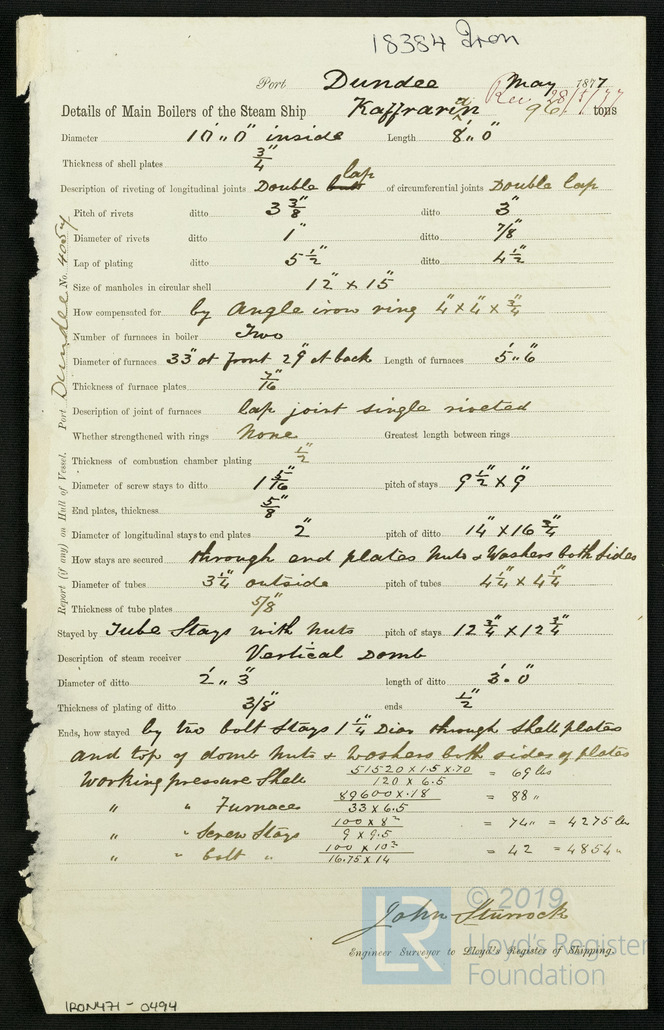 18384 Iron
Port Dundee May 1877
Rec. 28/5/77
Details of Main Boilers of the Steam Ship Kaffrarian 96 tons
Diameter 10'.. 0" inside Length 8'.. 0"
Thickness of shell plates 3/4"
Description of riveting of longitudinal joints Double butt lap of circumferential joints Double lap
Pitch of rivets ditto 3 3/8" ditto 3"
Diameter of rivets ditto 1" ditto 7/8"
Lap of plating ditto 5 1/2" ditto 4 1/2"
Size of manholes in circular shell 12" x 15"
How compensated for by Angle iron ring 4" x 4" x 3/4"
Number of furnaces in boiler Two
Diameter of furnaces 33" at front 29" at back Length of furnaces 5'.. 6"
Thickness of furnace plates 7/16"
Description of joint of furnaces lap joint single riveted
Whether strengthened with rings None Greatest length between rings
Thickness of combustion chamber plating 1/2"
Diameter of screw stays to ditto 1 5/16" pitch of stays 9 1/2" x 9"
End plates, thickness 5/8"
Diameter of longitudinal stays to end plates 2" pitch of ditto 14" x 16 3/4"
How stays are secured through end plates Nuts & Washers both sides
Diameter of tubes 3 1/4" outside pitch of tubes 4 1/4" x 4 1/4"
Thickness of tube plates 5/8"
Stayed by Tube Stays with nuts pitch of stays 12 3/4" x 12 3/4"
Description of steam receiver Vertical Domb
Diameter of ditto 2'.. 3" length of ditto 3'. 0"
Thickness of plating of ditto 3/8" ends 1/2"
Ends, how stayed by two bolt stays 1 1/4" Diar through shell plates
and top of domb nuts & washers both sides of plates
Working pressure Shell 51520 x 1.5 x .70 / 120 x 6.5 = 69 lbs
" " Furnaces 89600 x .18 / 33 x 6.5 = 88 "
" " Screw Stays 100 x 8² / 9 x 9.5 = 74 " = 4275 lbs
" " bolt " 100 x 10² / 16.75 x 14 = 42 = 4854 "
John Sturrock
Engineer Surveyor to Lloyd's Register of Shipping.
Report (if any) on Hull of Vessel. Port Dundee No. 4054
LR
© 2019
Lloyd's Register
Foundation
IRON471 - 0494